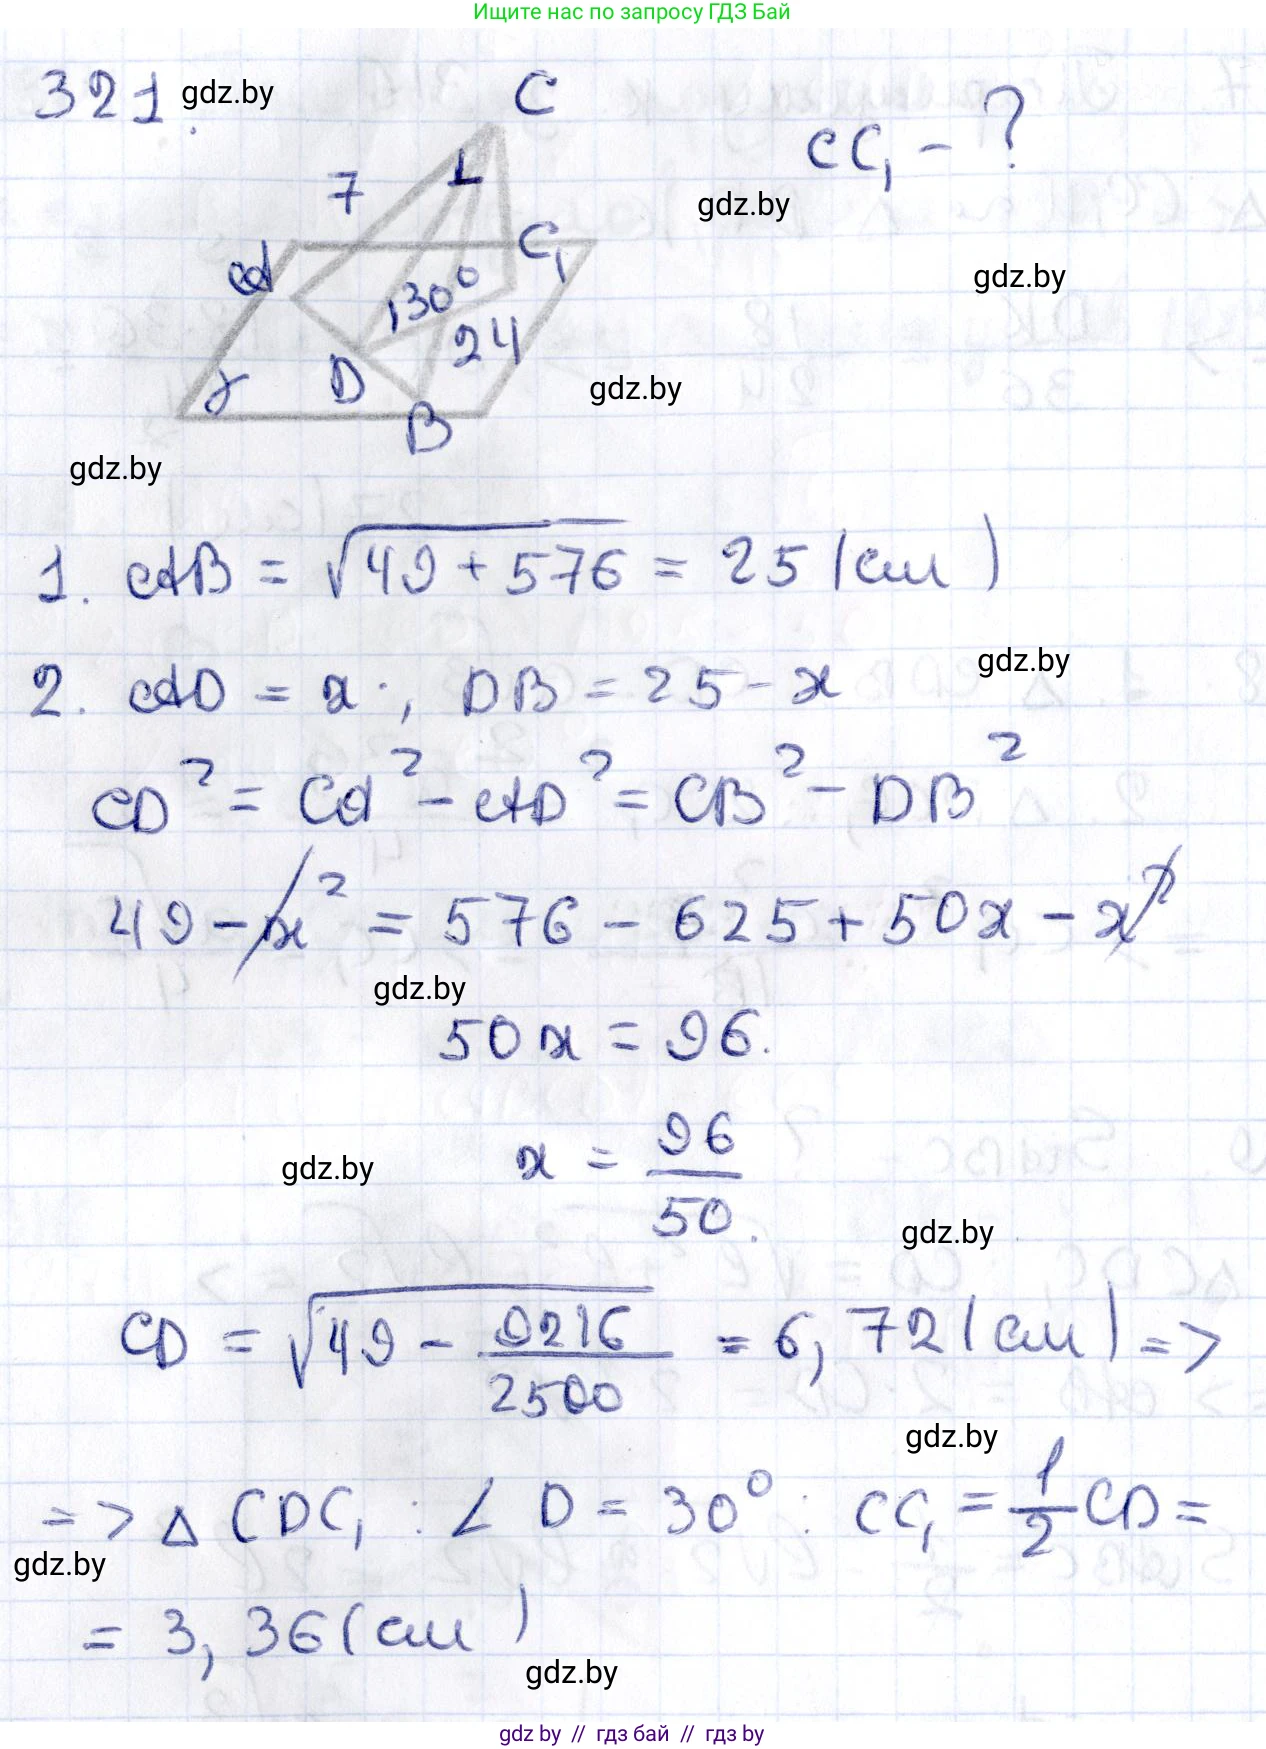 Ищите нас по запросу ГДЗ Бай
321. gdz.by
C
CC₁ - ?
7
L
gdz.by
A
C₁
gdz.by
130°
24
γ
D
gdz.by
B
gdz.by
1. AB = √(49 + 576) = 25 (см)
gdz.by
2. AD = x ; DB = 25 - x
CD² = CA² - AD² = CB² - DB²
49 - x² = 576 - 625 + 50x - x²
gdz.by
50x = 96.
x = 96/50.
gdz.by
gdz.by
CD = √(49 - 9216/2500) = 6,72 (см) =>
gdz.by
=> △ CDC₁ : ∠ D = 30° : CC₁ = 1/2 CD =
gdz.by
= 3,36 (см)
gdz.by
gdz by // гдз бай // гдз by